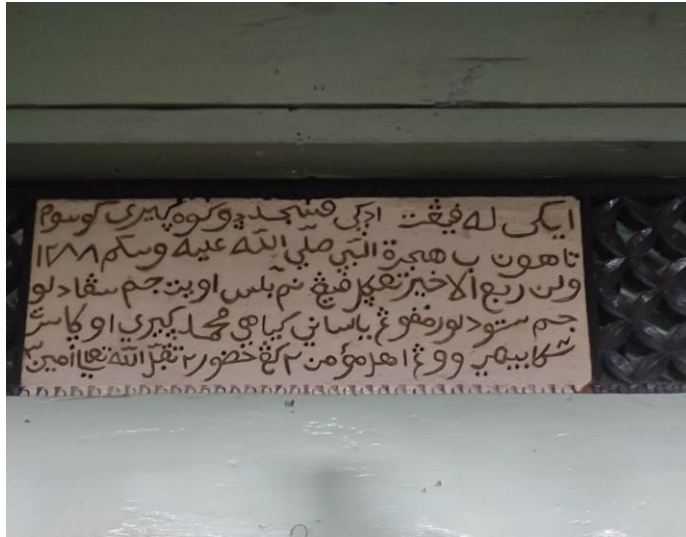 ايكى له فيڠت ادكى مسجد دوكوه كيري كوسوم
تاهون ب هجرة النبي صلى الله عليه وسلم ١٢٨٨
ولن ربع الاخير تڠكل فيڠ نم بلس اويت جم سڤادلو
جم ستو دلور مفوڠ ياساني كياهي محمد كبيري اوكاسر
شكابيهي ووڠ اهل مؤمن ٢ كڠ حضور ٢ تقبل الله تعالى امين ٣